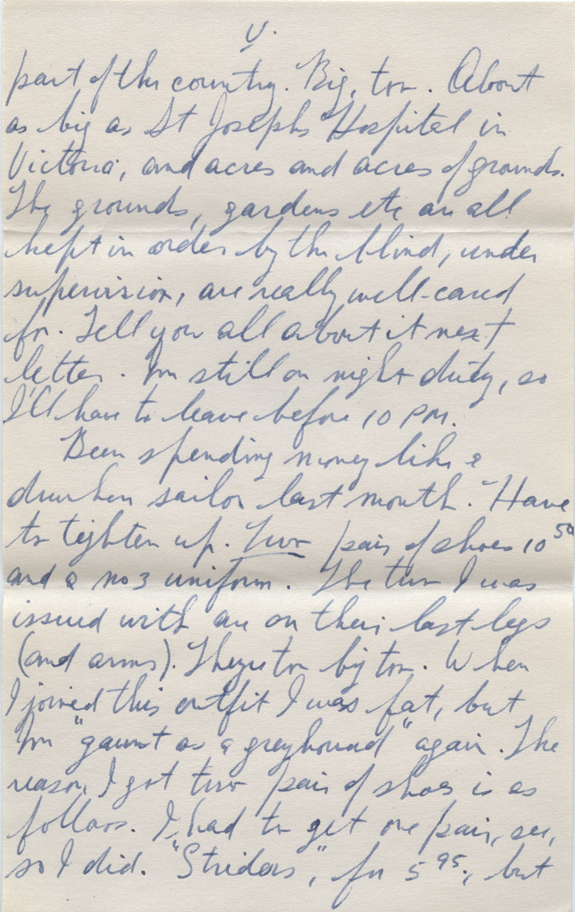 V.
part of the country. Big, too. About
as big as St Josephs Hospital in
Victoria, and acres and acres of grounds.
The grounds, gardens etc are all
kept in order by the blind, under
supervision, are really well-cared
for. Tell you all about it next
letter. I'm still on night duty, so
I'll have to leave before 10 PM.
Been spending money like a
drunken sailor last month. Have
to tighten up. Two pair of shoes 10 50
and a no 3 uniform. The two I was
issued with are on their last legs
(and arms). They're too big too. When
I joined this outfit I was fat, but
I'm "gaunt as a greyhound" again. The
reason I got two pair of shoes is as
follows. I had to get one pair, see,
so I did. "Striders", for 5 95, but